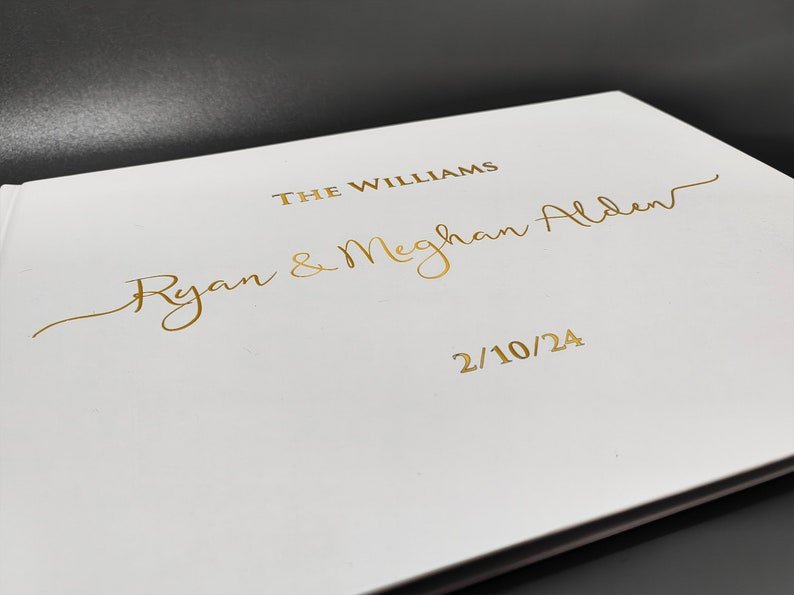 THE WILLIAMS
Ryan & Meghan Alden
2/10/24